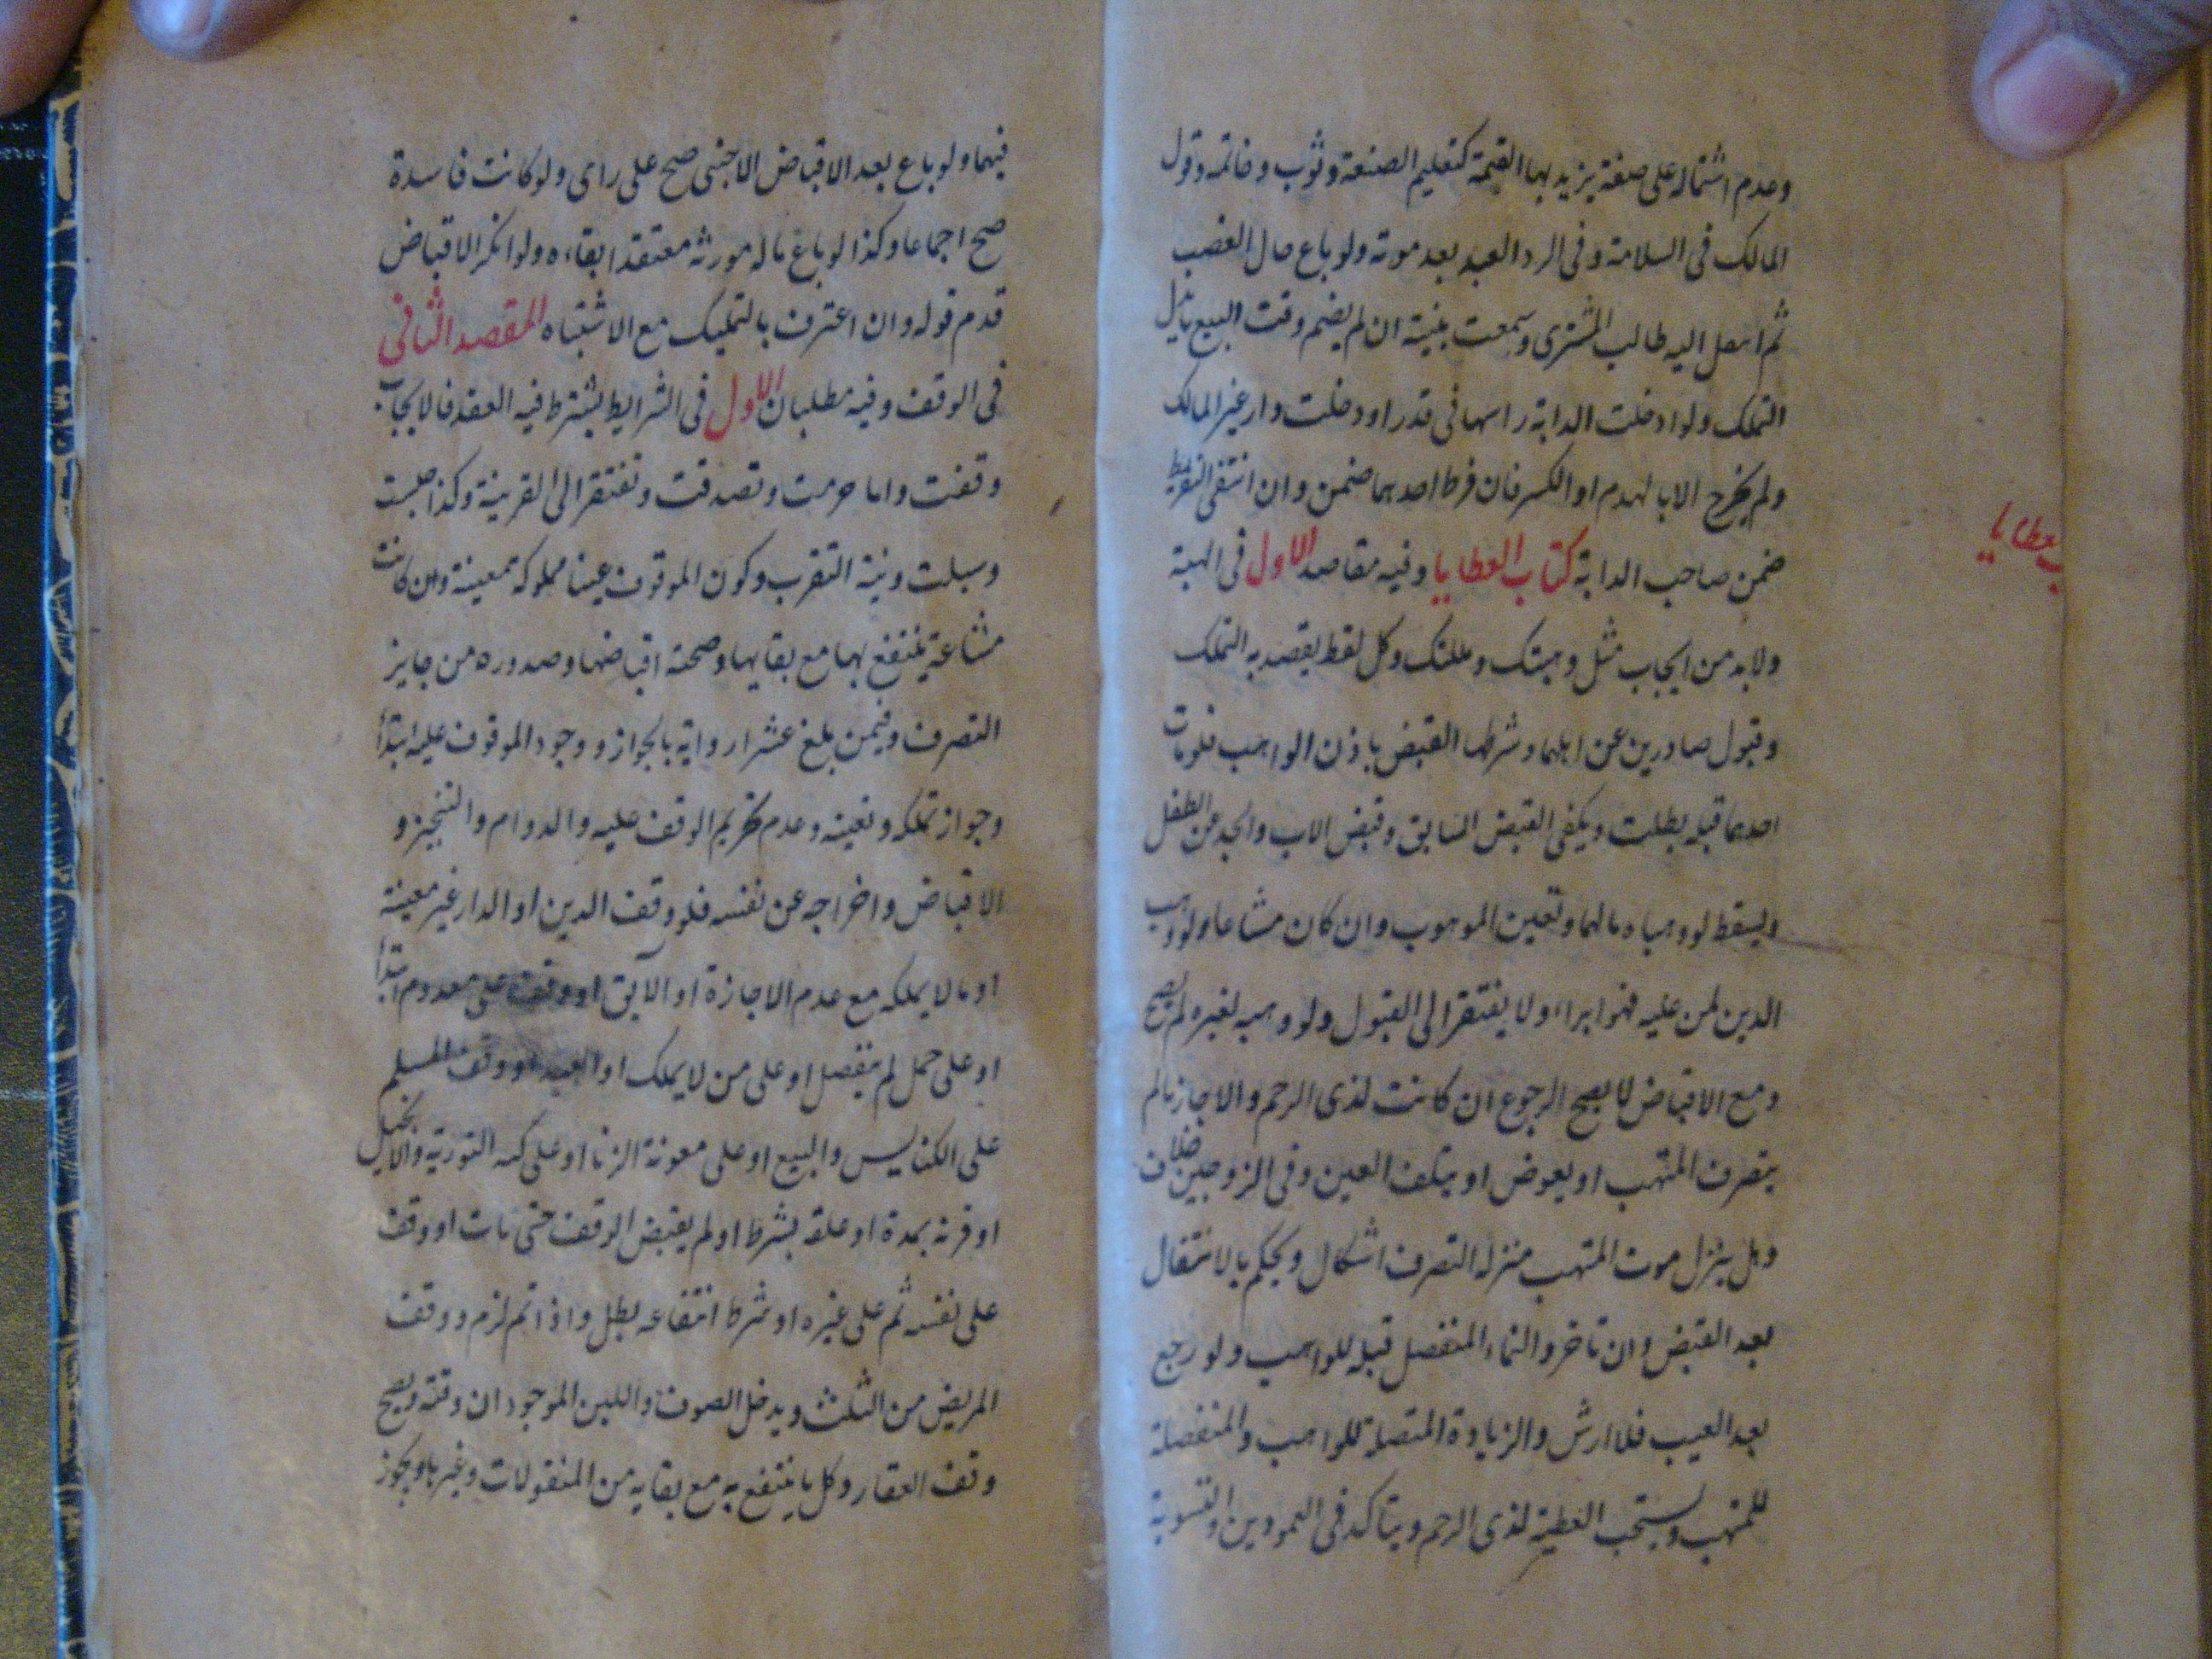 وعدم اشتماله على صنعة يزيد بها القيمة كتعليم الصنعة وثوب وخاتمه وقول
المالك فى السلامة وفى الرد العبد بعد موته ولو باع حال الغصب
ثم انتقل اليه طالب المشترى وسمعت بينته ان لم يضم وقت البيع
التملك ولو ادخلت الدابة راسها فى قدر او دخلت دار غير المالك
ولم يخرج الا بالهدم او الكسر فان فرط احدهما ضمن وان انتفى التفريط
ضمن صاحب الدابة كتاب العطايا وفيه مقاصد الاول فى الهبة
ولابد من ايجاب مثل وهبتك وملكتك وكل لفظ يقصد به التملك
وقبول صادرين عن اهلهما وشرطها القبض باذن الواهب فلو مات
احدهما قبله بطلت ويكفى القبض السابق وقبض الاب والجد عن الطفل
ويسقط لو وهباه مالهما وتعين الموهوب وان كان مشاعا ولو وهب
الدين لمن عليه فهو ابراء ولا يفتقر الى القبول ولو وهبه لغيره لم يصح
ومع الاقباض لا يصح الرجوع ان كانت لذى الرحم والا جاز مالم
يتصرف المتهب او يعوض او يتلف العين وفى الزوجين خلاف
وهل ينزل موت المتهب منزلة التصرف اشكال ويحكم بالانتقال
بعد القبض وان تاخر والنماء المنفصل قبله للواهب ولو رجع
بعد العيب فلا ارش والزيادة المتصلة للواهب والمنفصلة
للمتهب ويستحب العطية لذى الرحم ويتاكد فى العمودين والتسوية
العطايا
فيها ولو باع بعد الاقباض الاجنبى صح على راى ولو كانت فاسدة
صح اجماعا وكذا لو باغ ماله مورثه معتقدا بقاءه ولو انكر الاقباض
قدم قوله وان اعترف بالتمليك مع الاشتباه المقصد الثانى
فى الوقف وفيه مطلبان الاول فى الشرايط يشترط فيه العقد فالايجاب
وقفت واما حرمت وتصدقت وتفتقر الى القرينة وكذا حبست
وسبلت ونية التقرب وكون الموقوف عينا مملوكة معينة وان كانت
مشاعة ينتفع بها مع بقايها وصحة اقباضها وصدوره من جايز
التصرف وفيمن بلغ عشرا رواية بالجواز ووجود الموقوف عليه ابتدأ
وجواز تملكه وتعينه وعدم تحريم الوقف عليه والدوام والتنجيز و
الاقباض واخراجه عن نفسه فلو وقف الدين او الدار غير معينة
او مالا يملكه مع عدم الاجازة او الآبق او وقف على معدوم ابتدأ
او على حمل لم ينفصل او على من لا يملك او العبد او وقف المسلم
على الكنايس والبيع او على معونة الزنا او على كتبه التورية والانجيل
او قرنه بمدة او علقه بشرط او لم يقبض الوقف حتى مات او وقف
على نفسه ثم على غيره او شرط انتفاعه بطل واذا تم لزم ووقف
المريض من الثلث ويدخل الصوف واللبن الموجودان وقته ويصح
وقف العقار وكل ما ينتفع به مع بقايه من المنقولات وغيرها ويجوز